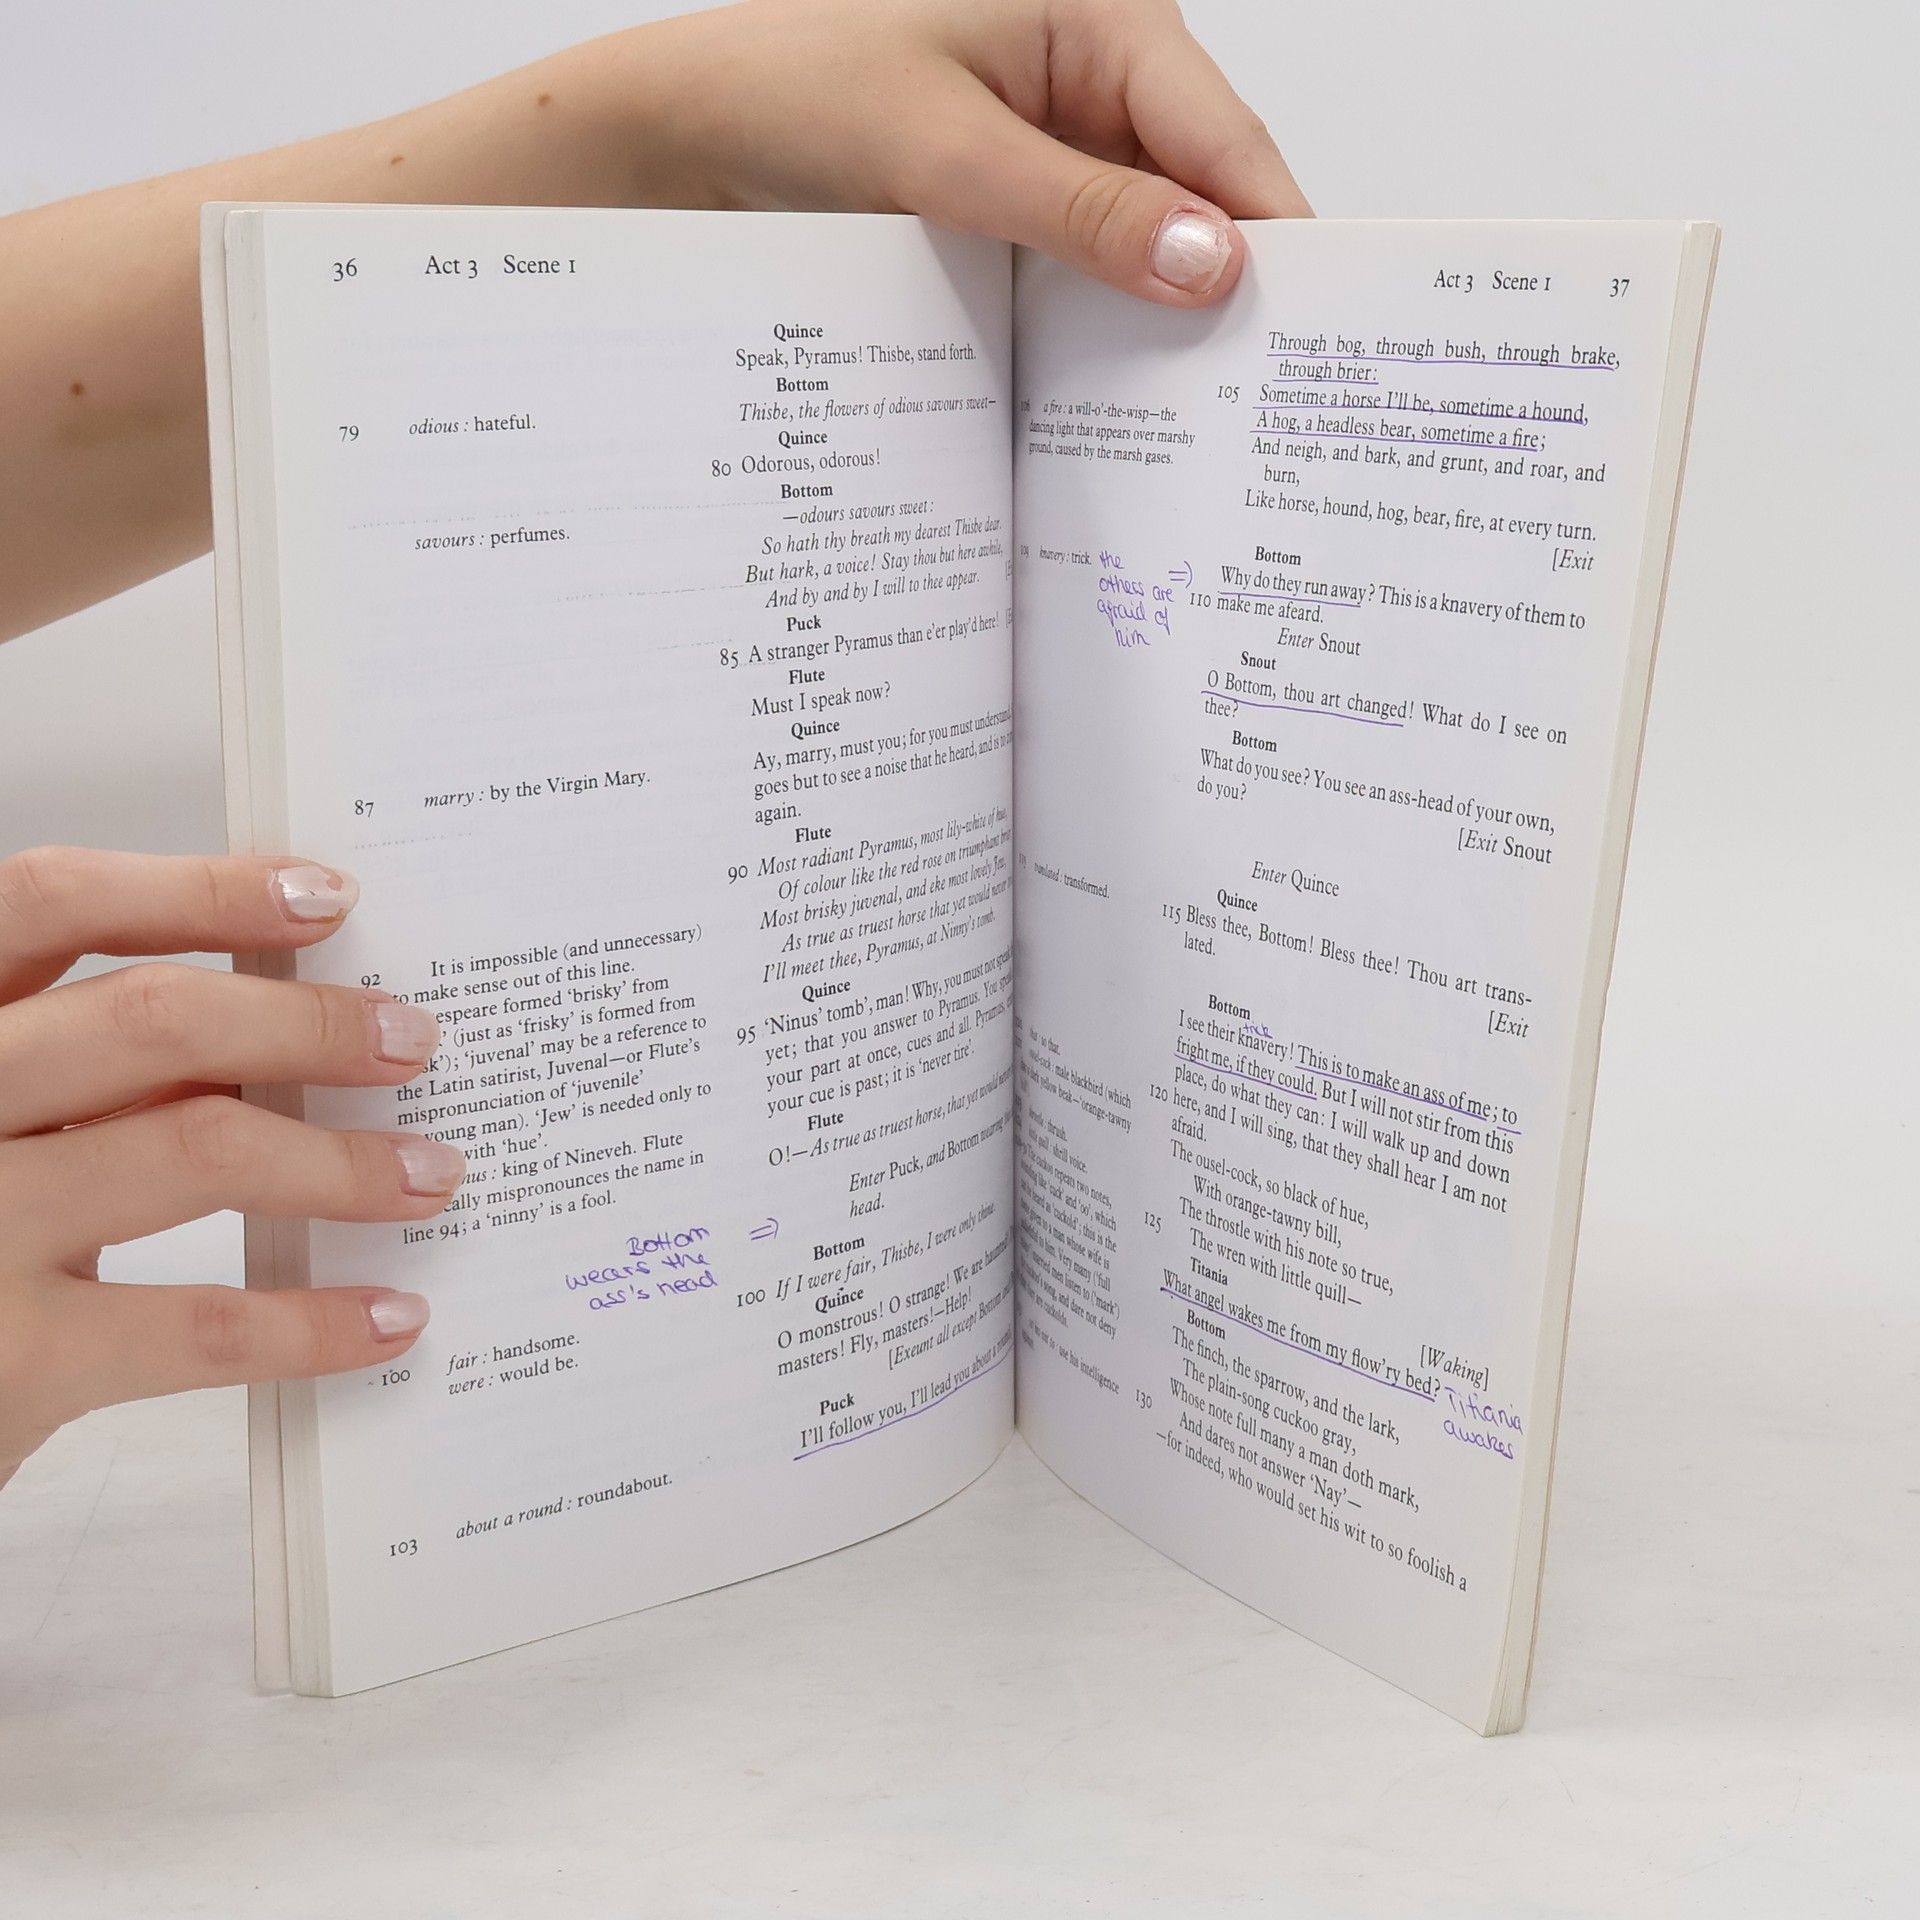 36 Act 3 Scene 1
Quince
Speak, Pyramus! Thisbe, stand forth.
Bottom
Thisbe, the flowers of odious savours sweet—
79 odious : hateful.
Quince
80 Odorous, odorous!
Bottom
—odours savours sweet :
savours : perfumes.
So hath thy breath my dearest Thisbe dear.
But hark, a voice! Stay thou but here awhile,
And by and by I will to thee appear.
Puck
85 A stranger Pyramus than e'er play'd here!
Flute
Must I speak now?
Quince
87 marry : by the Virgin Mary.
Ay, marry, must you; for you must understand
goes but to see a noise that he heard, and is to
again.
Flute
90 Most radiant Pyramus, most lily-white of hue,
Of colour like the red rose on triumphant
Most brisky juvenal, and eke most lovely Jew,
As true as truest horse that yet would never
I'll meet thee, Pyramus, at Ninny's tomb.
92 It is impossible (and unnecessary)
to make sense out of this line.
espeare formed 'brisky' from
' (just as 'frisky' is formed from
sk'); 'juvenal' may be a reference to
the Latin satirist, Juvenal—or Flute's
mispronunciation of 'juvenile'
young man). 'Jew' is needed only to
with 'hue'.
nus : king of Nineveh. Flute
cally mispronounces the name in
line 94; a 'ninny' is a fool.
Quince
95 'Ninus' tomb', man! Why, you must not speak
yet; that you answer to Pyramus. You
your part at once, cues and all. Pyramus,
your cue is past; it is 'never tire'.
Flute
O!—As true as truest horse, that yet would never
Enter Puck, and Bottom wearing
head.
Bottom =>
wears the
ass's head
Bottom
100 If I were fair, Thisbe, I were only thine.
Quince
O monstrous! O strange! We are haunted!
masters! Fly, masters!—Help!
[Exeunt all except Bottom
100 fair : handsome.
were : would be.
Puck
I'll follow you, I'll lead you about a round,
103 about a round : roundabout.
Act 3 Scene 1 37
Through bog, through bush, through brake,
through brier:
105 Sometime a horse I'll be, sometime a hound,
A hog, a headless bear, sometime a fire;
And neigh, and bark, and grunt, and roar, and
burn,
Like horse, hound, hog, bear, fire, at every turn.
[Exit
a fire : a will-o'-the-wisp—the
dancing light that appears over marshy
ground, caused by the marsh gases.
Bottom
Why do they run away? This is a knavery of them to
110 make me afeard.
knavery : trick.
the =>
others are
afraid of
him
Enter Snout
Snout
O Bottom, thou art changed! What do I see on
thee?
Bottom
What do you see? You see an ass-head of your own,
do you?
[Exit Snout
Enter Quince
translated : transformed.
Quince
115 Bless thee, Bottom! Bless thee! Thou art trans-
lated.
[Exit
Bottom
trick
I see their knavery! This is to make an ass of me; to
fright me, if they could. But I will not stir from this
place, do what they can: I will walk up and down
120 here, and I will sing, that they shall hear I am not
afraid.
The ousel-cock, so black of hue,
With orange-tawny bill,
The throstle with his note so true,
125 The wren with little quill—
Titania
[Waking]
What angel wakes me from my flow'ry bed?
Titania
awakes
Bottom
The finch, the sparrow, and the lark,
The plain-song cuckoo gray,
130 Whose note full many a man doth mark,
And dares not answer 'Nay'—
—for indeed, who would set his wit to so foolish a
male blackbird (which
yellow beak—'orange-tawny
thrush.
shrill voice.
cuckoo repeats two notes,
'cuck' and 'oo', which
'cuckold'; this is the
to a man whose wife is
to him. Very many ('full
married men listen to ('mark')
song, and dare not deny
cuckolds.
use his intelligence